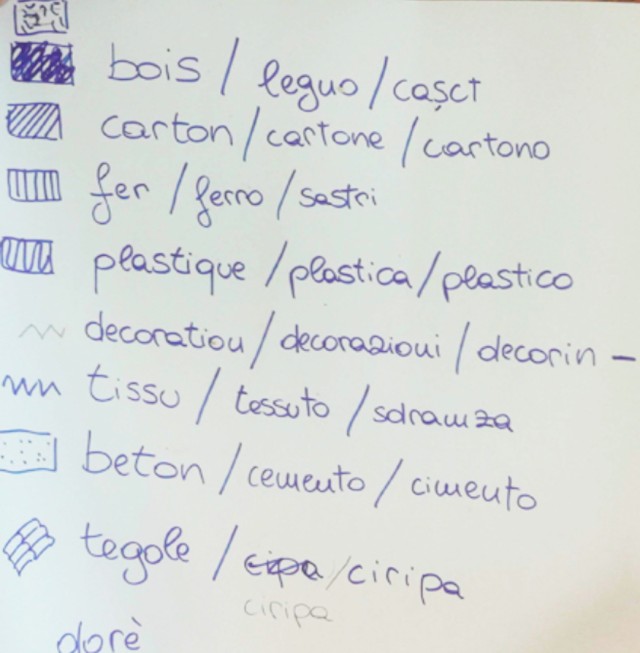 bois / legno / caşct
carton / cartone / cartono
fer / ferro / sastri
plastique / plastica / plastico
decoration / decorazioni / decorin –
tissu / tessuto / sdrawza
beton / cemento / cimento
tegole / cipa / ciripa
ciripa
dorè